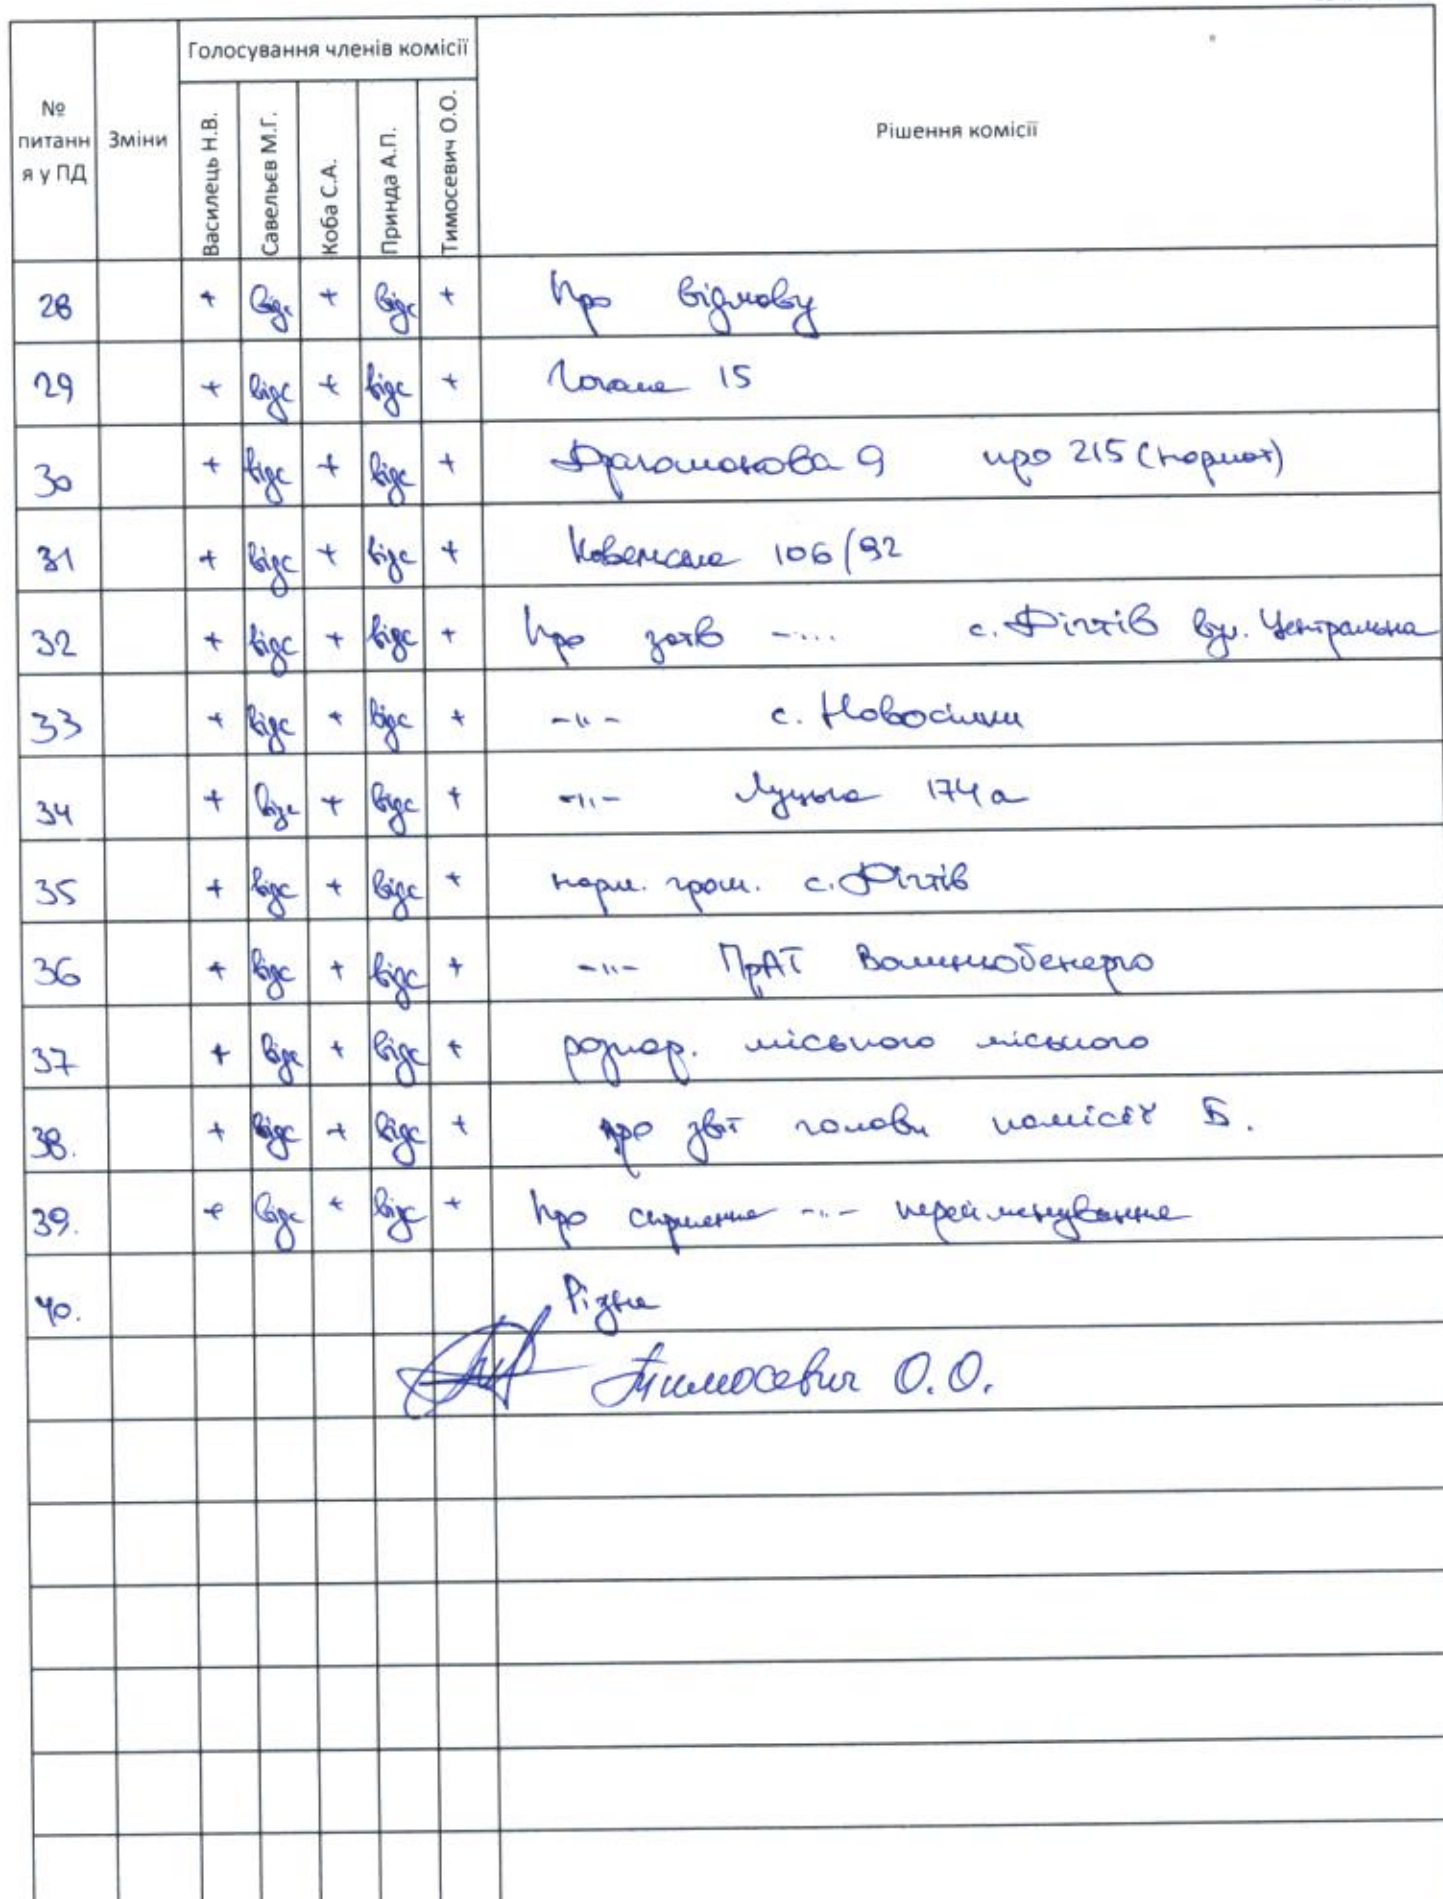 Голосування членів комісії
№ питанн я у ПД
Зміни
Василець Н.В.
Савельєв М.Г.
Коба С.А.
Принда А.П.
Тимосевич О.О.
Рішення комісії
28 + відс + відс + Про відмову
29 + відс + відс + 15
30 + відс + відс + Драгоманова 9 про 215 (нормат)
31 + відс + відс + Ковельська 106/92
32 + відс + відс + Про затв -.... с. Фігтів вул. Центральна
33 + відс + відс + -"- с. Новосілки
34 + відс + відс + -"- Луцька 174а
35 + відс + відс + норм. грош. с. Фігтів
36 + відс + відс + -"- ПрАТ Волиньобенерго
37 + відс + відс + розпор. міського міського
38. + відс + відс + про звіт голови комісії Б.
39. + відс + відс + Про сприяння -"- перейменування
40. Різне
Тимосевич О.О.